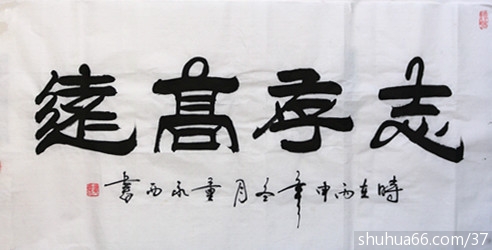 志存高遠
時在丙申年冬月童永西書
shuhua66.com/37